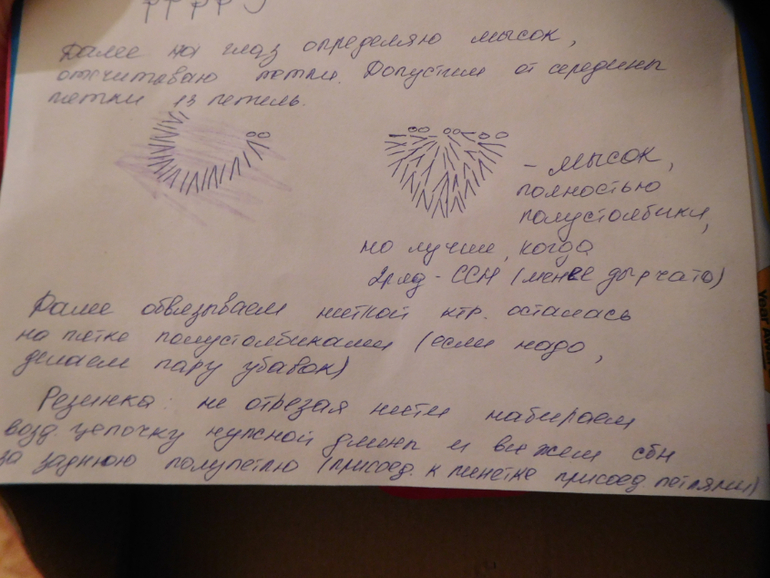 Далее на глаз определяю мысок,
отсчитываю петли. Допустим от середины
пятки 13 петель.
- мысок,
полностью
полустолбики,
но лучше, когда
2 ряд - ССН (менее дырчато)
Далее обвязываем ниткой ктр. осталась
на пятке полустолбиками (если надо,
делаем пару убавок)
Резинка: не отрезая нити набираем
возд. цепочку нужной длины и вяжем сбн
за заднюю полупетлю (присоед. к пинетке присоед. петлями)
Your